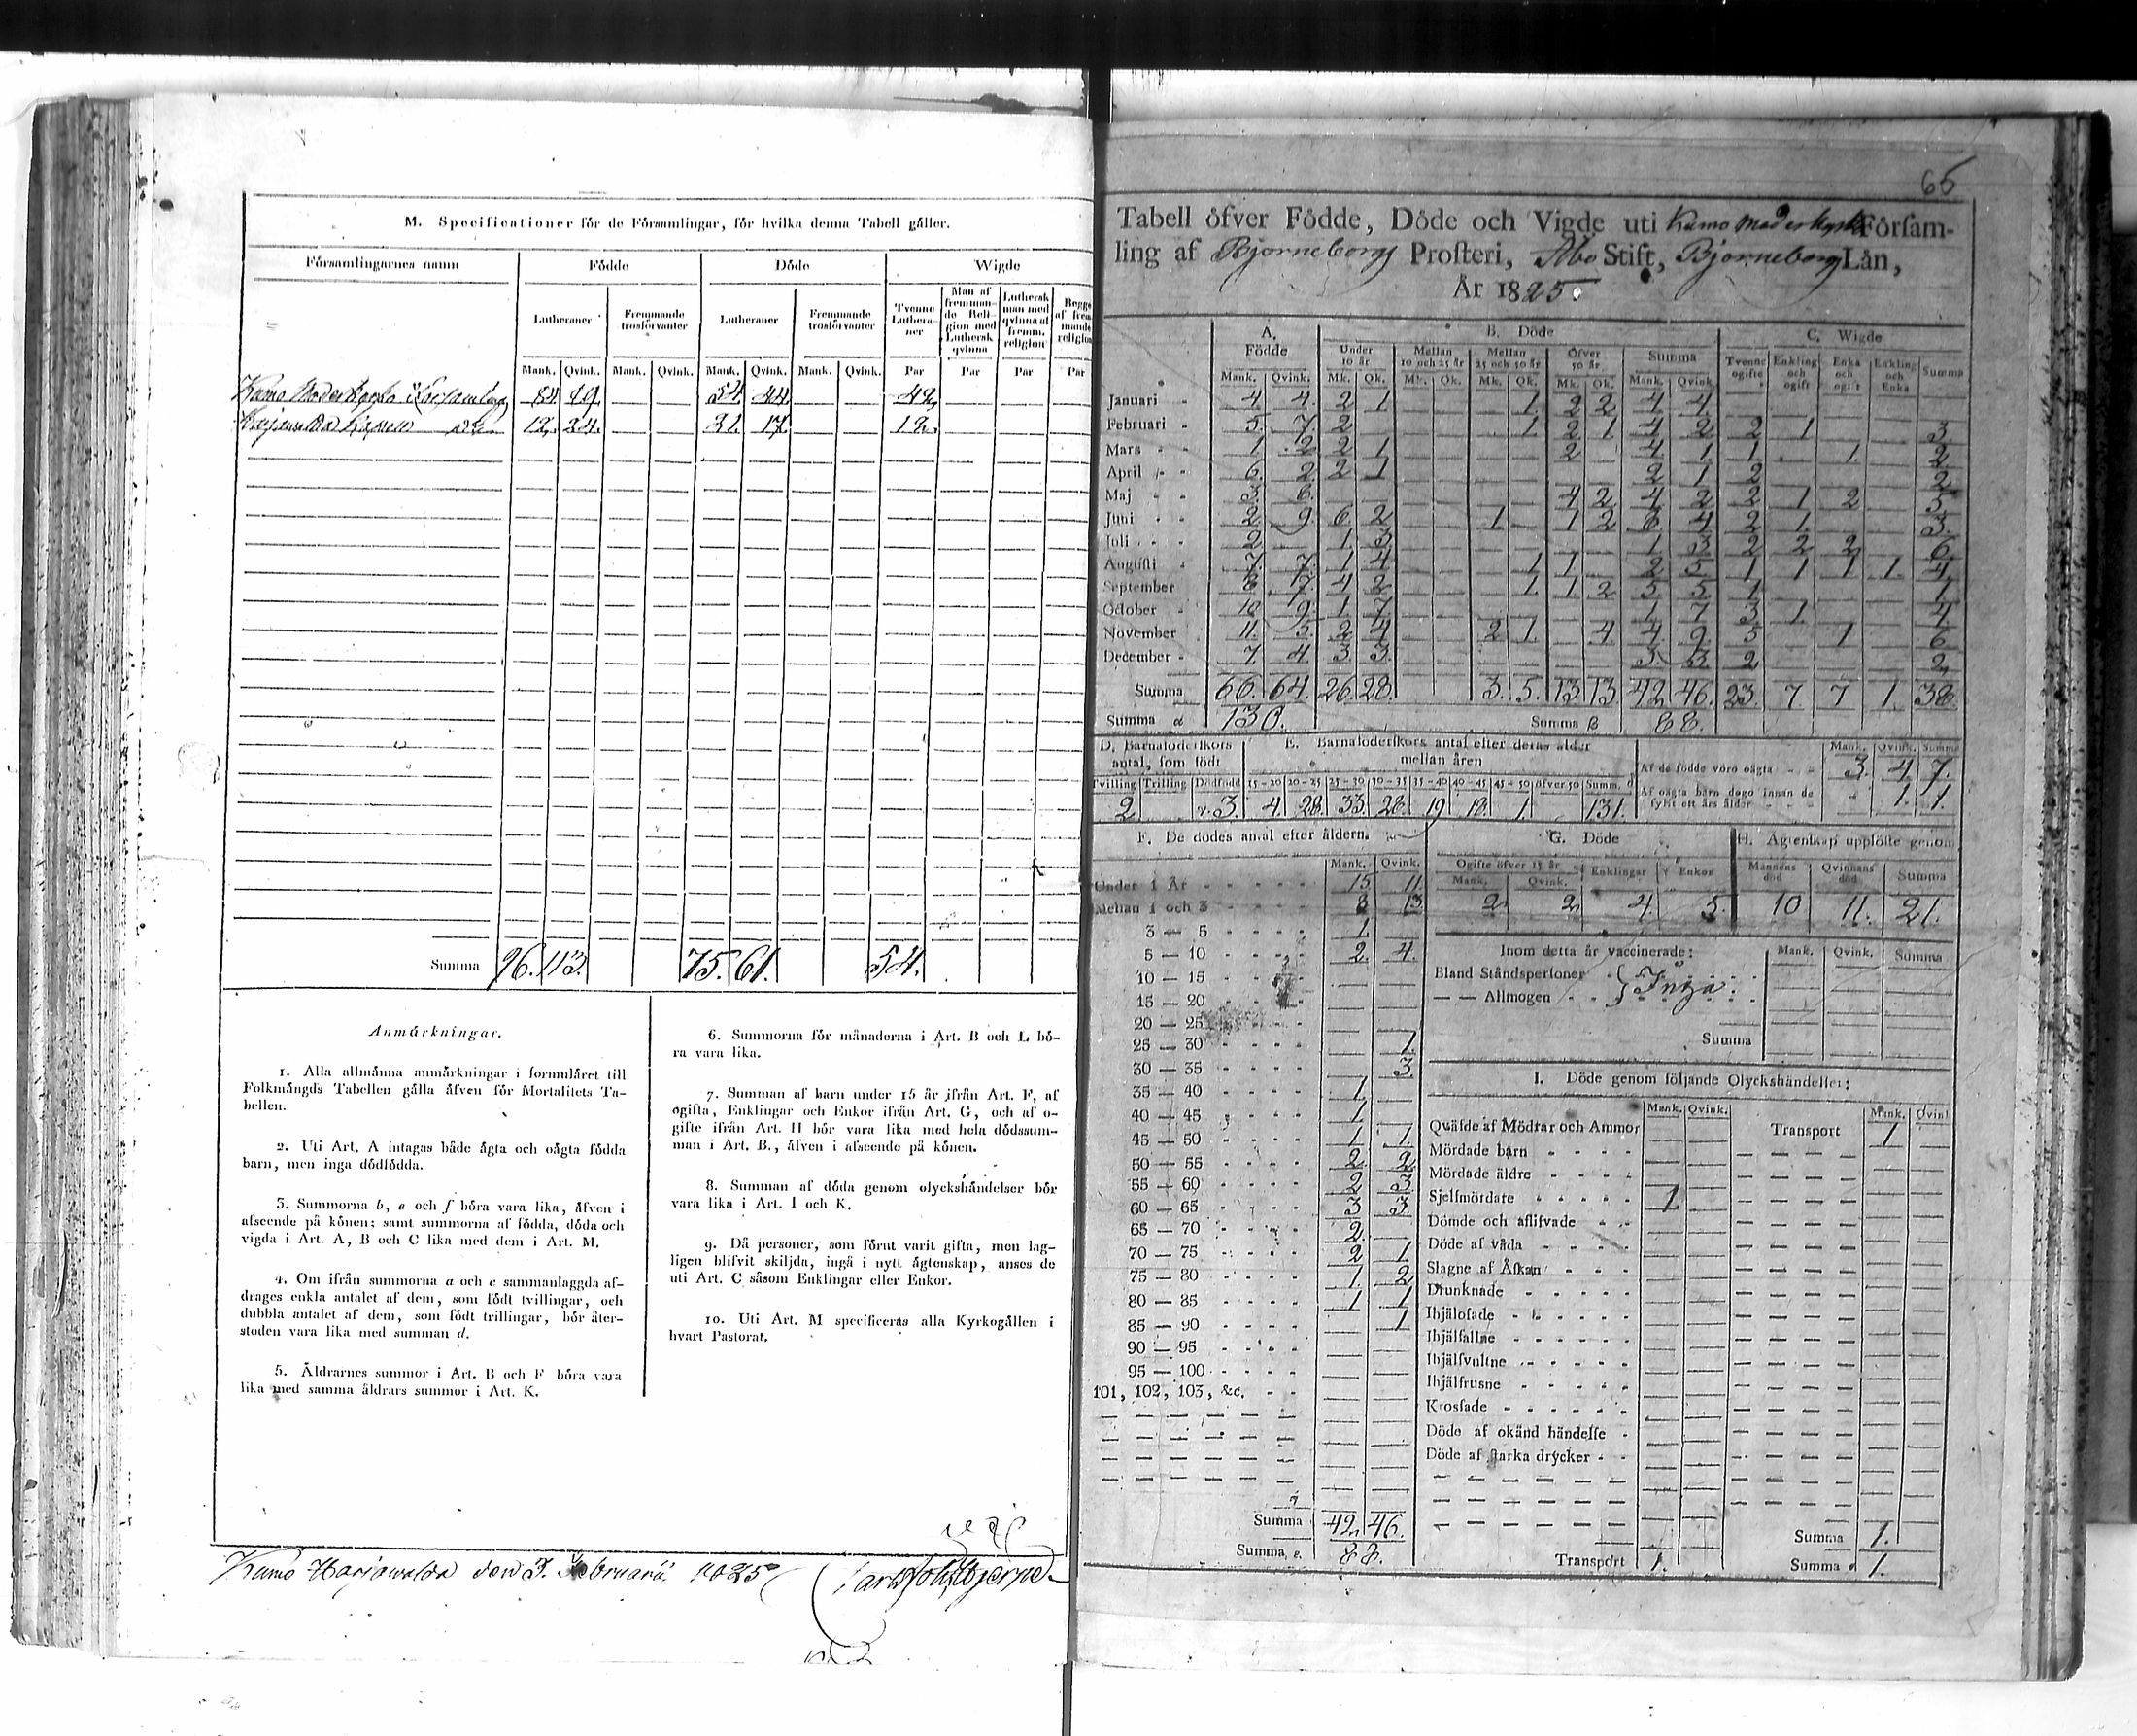 M. Specificationer för de Församlingar, för hvilka denna Tabell gäller.
Församlingarnes namn Födde Döde Wigde
Lutheraner Fremmande trosförvanter Lutheraner Fremmande trosförvanter Tvenne Lutheraner Man af fremmande Religion med Luthersk qvinna Luthersk man med qvinna af fremm. religion Begge af fremmande religion
Mank. Qvink. Mank. Qvink. Mank. Qvink. Mank. Qvink. Par Par Par Par
Kumo Moderkyrko Församling 84. 89. 54. 44. 42.
Kapell 12. 24. 21. 17. 12.
Summa 96. 113. 75. 61. 54.
Anmärkningar.
1. Alla allmänna anmärkningar i formuläret till
Folkmängds Tabellen gälla äfven för Mortalitets Ta-
bellen.
2. Uti Art. A intagas både ägta och oägta födda
barn, men inga dödfödda.
3. Summorna b, e och f böra vara lika, äfven i
afseende på könen; samt summorna af födda, döda och
vigda i Art. A, B och C lika med dem i Art. M.
4. Om ifrån summorna a och c sammanlaggda af-
drages enkla antalet af dem, som födt tvillingar, och
dubbla antalet af dem, som födt trillingar, bör åter-
stoden vara lika med summan d.
5. Åldrarnes summor i Art. B och F böra vara
lika med samma åldrars summor i Art. K.
6. Summorna för månaderna i Art. B och L bö-
ra vara lika.
7. Summan af barn under 15 år ifrån Art. F, af
ogifta, Enklingar och Enkor ifrån Art. G, och af o-
gifte ifrån Art. H bör vara lika med hela dödssum-
man i Art. B., äfven i afseende på könen.
8. Summan af döda genom olyckshändelser bör
vara lika i Art. I och K.
9. Då personer, som förut varit gifta, men lag-
ligen blifvit skiljda, ingå i nytt ägtenskap, anses de
uti Art. C såsom Enklingar eller Enkor.
10. Uti Art. M specificeras alla Kyrkogällen i
hvart Pastorat.
Kumo Harjawalda den 3. Februarii 1825
65
Tabell öfver Födde, Döde och Vigde uti Kumo Moderkyrko Församling
ling af Björneborgs Prosteri, Åbo Stift, Björneborgs Län,
År 1825.
A. Födde B. Döde C. Wigde
Under 10 år Mellan 10 och 25 år Mellan 25 och 50 år Öfver 50 år Summa Tvenne ogifte Enkling och ogift Enka och ogift Enkling och Enka Summa
Mank. Qvink. Mk. Qk. Mk. Qk. Mk. Qk. Mk. Qk. Mank. Qvink.
Januari 4 4. 2 1 1. 2 2 4 4.
Februari 5. 7. 2 1 2 1 4 2 2 1 3.
Mars 1 2 2 1 2 4 1 1 1. 2
April 6. 2 2 1 2 1 2 2
Maj 3 6. 4 2 4 2 2 1 2 5.
Juni 2 9 6 2 1 1 2 8 4 2 1. 3.
Joli 2 1 3 1 3 2 2 2 6.
Augusti 7. 7. 1 4 1 1 2 5 1 1 1 1. 4
September 8 7. 4 2 1. 1 2 5 5 1 1
October 10 9 1 7 1 7 3 1. 4.
November 11. 5. 2 4 2 1. 4 4 9. 5 1 6
December 7. 4 3 3 3. 3 2 2,
Summa 66. 64. 26. 28. 3. 5. 13 13 42 46. 23. 7 7 1. 38
Summa a 130. Summa b 88.
D. Barnaföderskors antal, som födt
E. Barnaföderskors antal efter deras ålder mellan åren
Mank. Qvink. Summa
Tvilling Trilling Dödfödde 15-20 20-25 25-30 30-35 35-40 40-45 45-50 öfver 50 Summ. d
2 3. 4. 28. 33. 28. 19 18. 1. 131.
Af de födde voro oägta 3. 4 7.
Af oägta barn dogo innan de fyllt ett års ålder 1. 1.
F. De dödes antal efter åldern.
Mank. Qvink.
Under 1 År 15 11
Mellan 1 och 3 8 13
3 — 5 1.
5 — 10 2. 4.
10 — 15
15 — 20
20 — 25
25 — 30 1.
30 — 35 3.
35 — 40 1.
40 — 45 1
45 — 50 1 1.
50 — 55 2. 2
55 — 60 2 3
60 — 65 3 3.
65 — 70 2.
70 — 75 2 1
75 — 80 1. 2
80 — 85 1 1
85 — 90 1
90 — 95
95 — 100
101, 102, 103, &c.
Summa 42. 46.
Summa, e. 88.
G. Döde
Ogifte öfver 15 år Enklingar Enkor
Mank. Qvink.
2 2 4. 5.
H. Ägtenskap uplösste genom
Mannens död Qvinnans död Summa
10 11. 21.
Inom detta år vaccinerade: Mank. Qvink. Summa
Bland Ståndspersoner
— — Allmogen Inga.
Summa
I. Döde genom följande Olyckshändelser:
Mank. Qvink. Mank. Qvink
Qväfde af Mödrar och Ammor Transport 1
Mördade barn
Mördade äldre
Sjelfmördare 1
Dömde och aflifvade
Döde af våda
Slagne af Åskan
Drunknade
Ihjälosade
Ihjälfallne
Ihjälsvultne
Ihjälfrusne
Krossade
Döde af okänd händelse
Döde af starka drycker
Summa 1.
Transport 1. Summa 1.